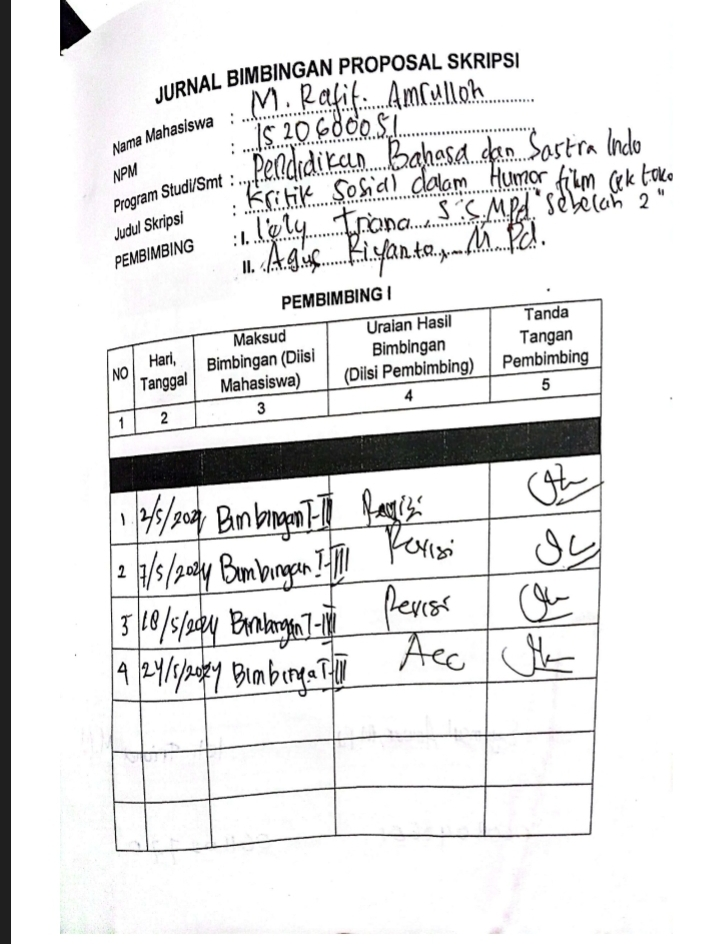 JURNAL BIMBINGAN PROPOSAL SKRIPSI
Nama Mahasiswa : M. Rafif. Amrulloh
NPM : 1520600051
Program Studi/Smt : Pendidikan Bahasa dan Sastra Indo
Judul Skripsi : Kritik Sosial dalam Humor film Cek toko sebelah 2"
PEMBIMBING : I. Lely Triana, S.S, M.Pd
II. Agus Riyanto, M.Pd.
PEMBIMBING I
NO Hari, Tanggal Maksud Bimbingan (Diisi Mahasiswa) Uraian Hasil Bimbingan (Diisi Pembimbing) Tanda Tangan Pembimbing
1 2 3 4 5
1. 2/5/2024 Bimbingan I-III Revisi
2 7/5/2024 Bimbingan I-III Revisi
3 18/5/2024 Bimbingan I-III Revisi
4 24/5/2024 Bimbinga I-III Acc